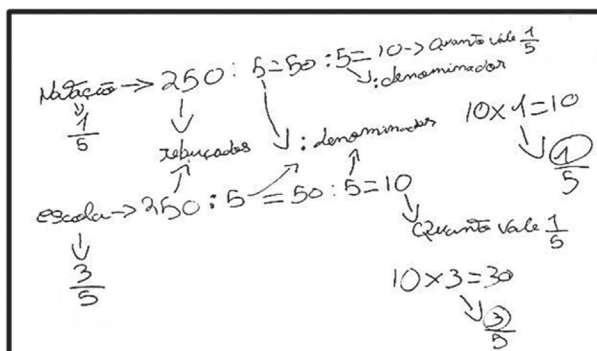 Natação → 250 : 5 = 50 : 5 = 10 → Quanto vale 1/5
1/5
: denominador
rebuçados
: denominador
10 x 1 = 10
1/5
escola → 250 : 5 = 50 : 5 = 10
3/5
Quanto vale 1/5
10 x 3 = 30
3/5